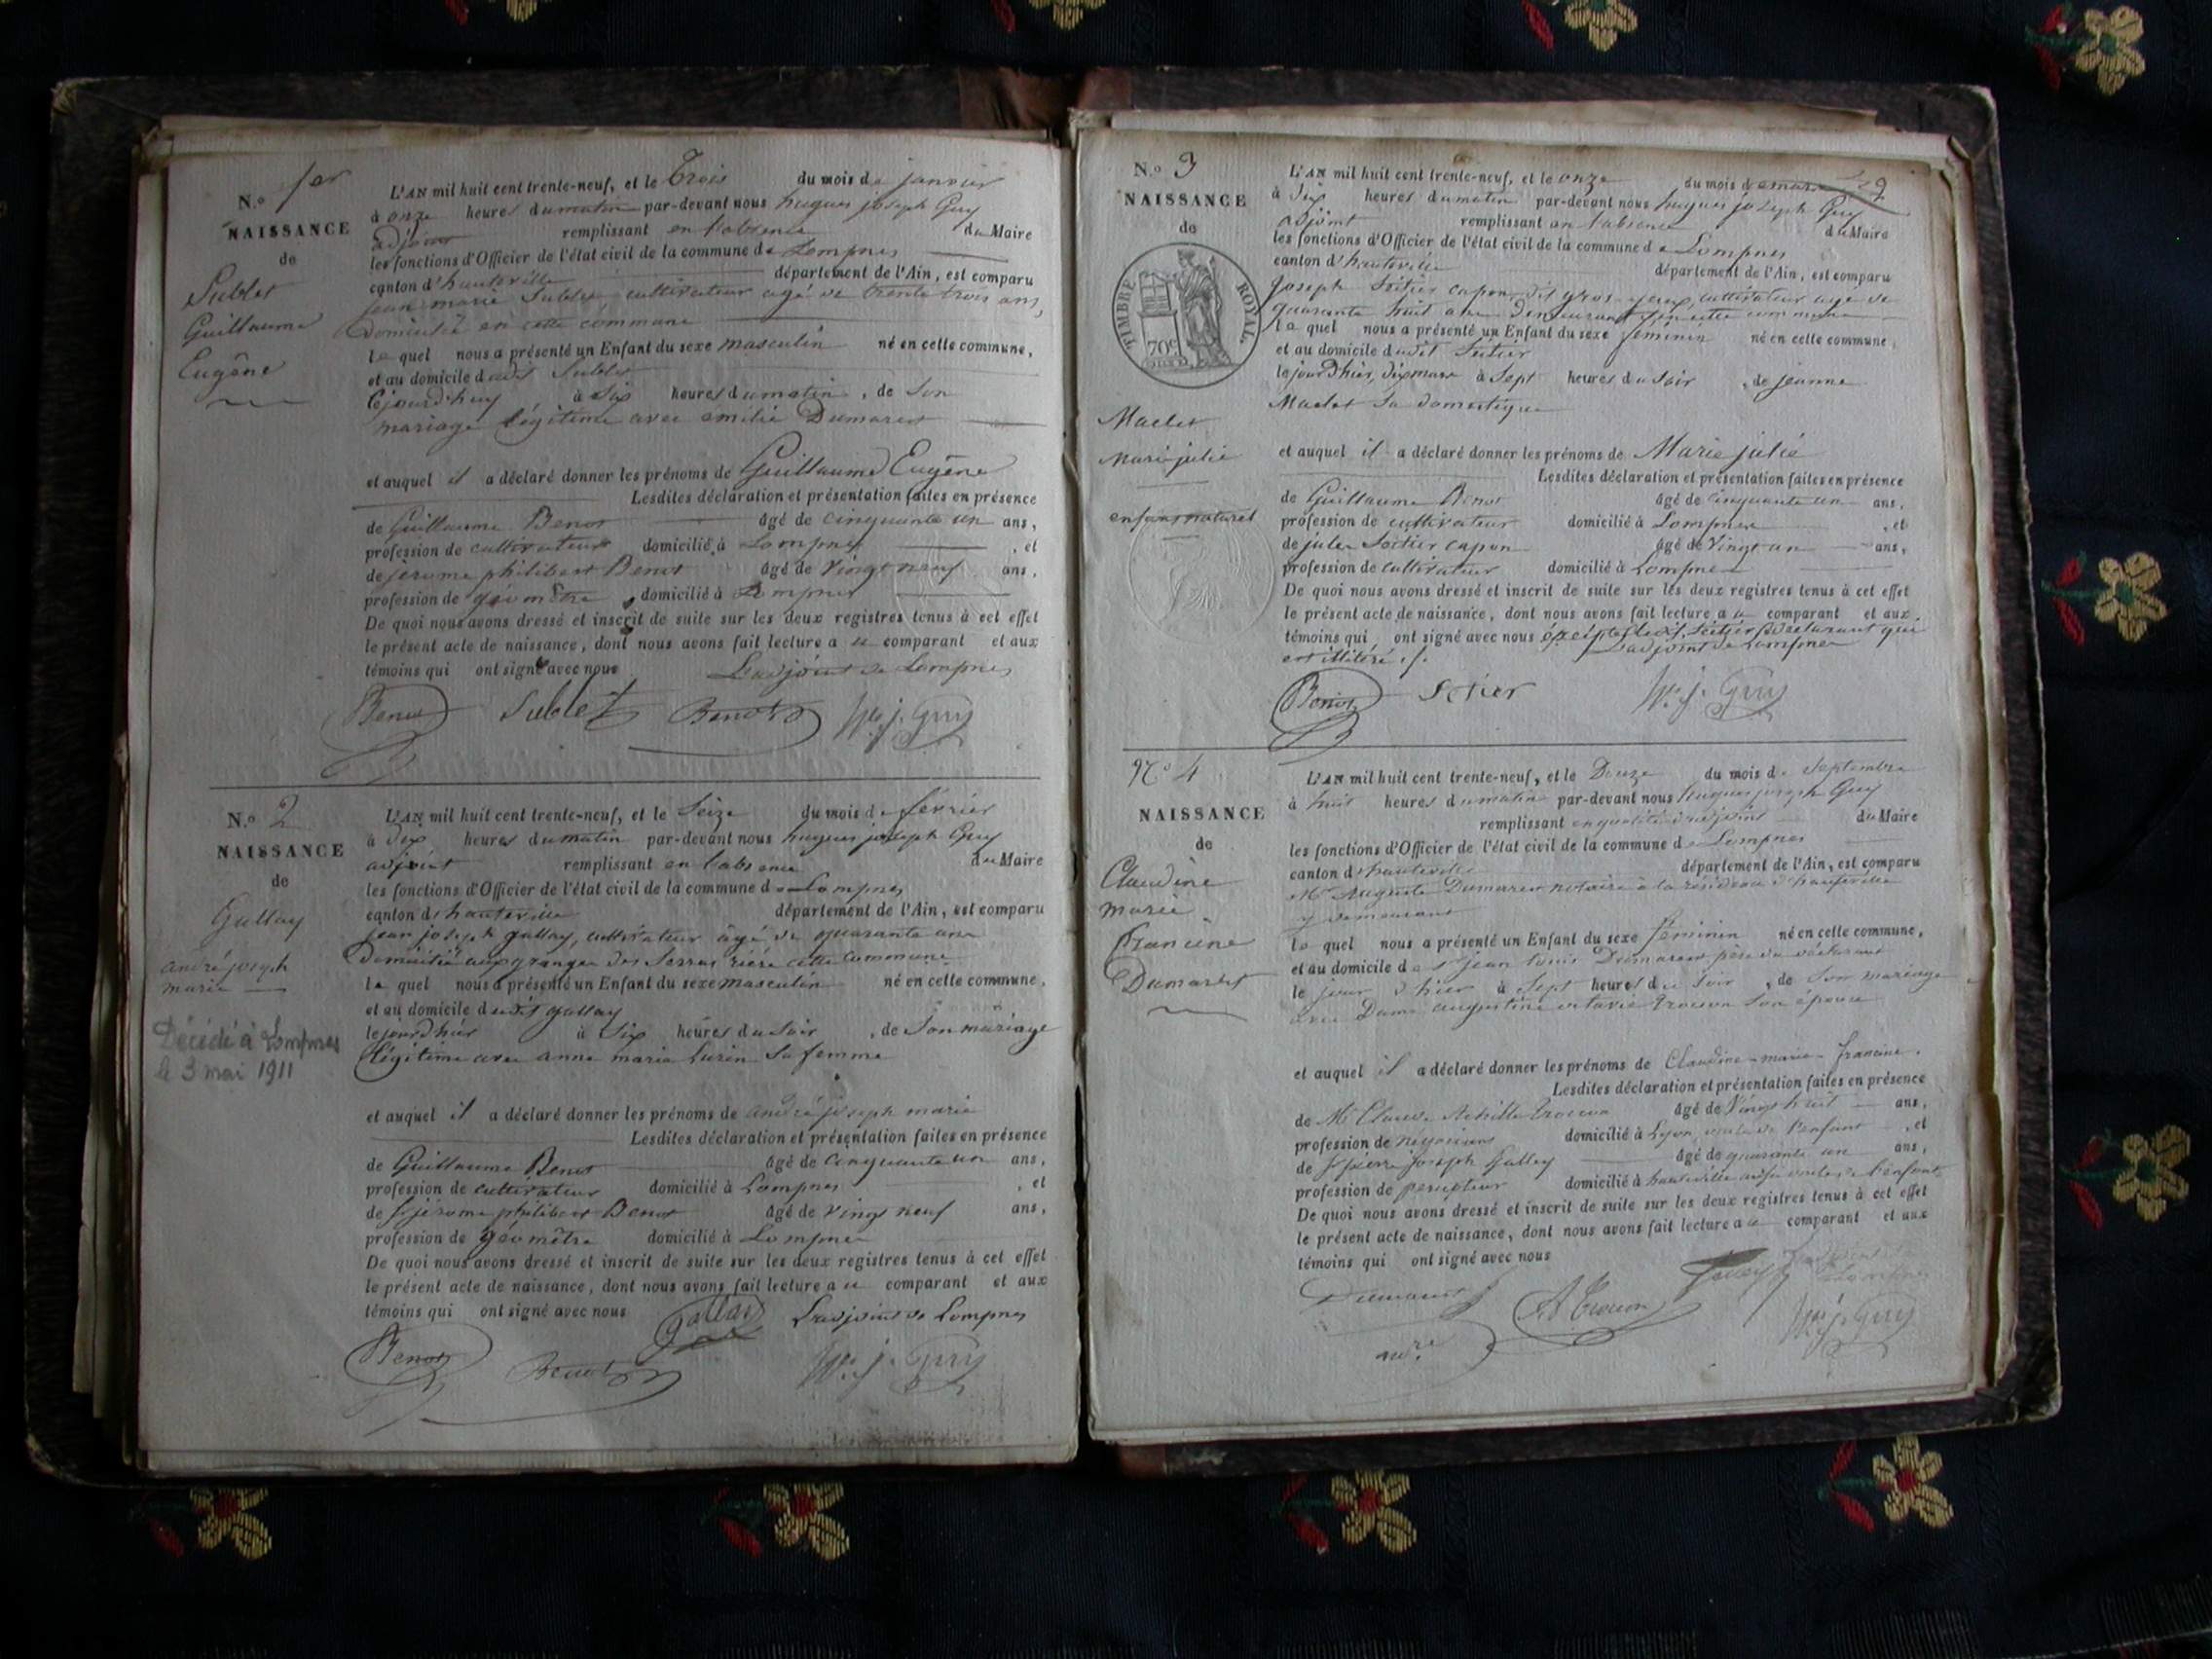 N.o 1er
NAISSANCE
de
Sublet
Guillaume
Eugène
L'AN mil huit cent trente-neuf, et le Trois du mois de janvier
à onze heures du matin par-devant nous hugues joseph Guy
adjoint remplissant en l'absence du Maire
les fonctions d'Officier de l'état civil de la commune de Lompnes
canton d'hauteville département de l'Ain, est comparu
jean marie Sublet cultivateur agé de trente trois ans,
domicilié en cette commune
Le quel nous a présenté un Enfant du sexe masculin né en cette commune,
et au domicile dudit Sublet
cejourd'huy à Six heures du matin, de Son
mariage légitime avec emilie Dumarest
et auquel il a déclaré donner les prénoms de Guillaume Eugène
Lesdites déclaration et présentation faites en présence
de Guillaume Benot âgé de cinquante un ans,
profession de cultivateur domicilié à Lompnes, et
de jerome philibert Benot âgé de Vingt neuf ans,
profession de géomètre, domicilié à Lompnes
De quoi nous avons dressé et inscrit de suite sur les deux registres tenus à cet effet
le présent acte de naissance, dont nous avons fait lecture a ce comparant et aux
témoins qui ont signé avec nous L'adjoint de Lompnes
Benot Sublet Benot h. j. Guy
N.o 2
NAISSANCE
de
Gallay
andré joseph
marie
Décédé à Lompnes
le 3 mai 1911
L'AN mil huit cent trente-neuf, et le Seize du mois de février
à dix heures du matin par-devant nous hugues joseph Guy
adjoint remplissant en l'absence du Maire
les fonctions d'Officier de l'état civil de la commune de Lompnes
canton d'hauteville département de l'Ain, est comparu
jean joseph gallay, cultivateur âgé de quarante ans
Domicilié aux granges des Serras rière cette commune
Le quel nous a présenté un Enfant du sexe masculin né en cette commune,
et au domicile dudit gallay
lejourd'hier à Six heures du Soir, de Son mariage
légitime avec anne maria Luzin Sa femme
et auquel il a déclaré donner les prénoms de andré joseph marie
Lesdites déclaration et présentation faites en présence
de Guillaume Benot âgé de Cinquante un ans,
profession de cultivateur domicilié à Lompnes, et
de Sr jerome philibert Benot âgé de vingt neuf ans,
profession de géomètre domicilié à Lompnes
De quoi nous avons dressé et inscrit de suite sur les deux registres tenus à cet effet
le présent acte de naissance, dont nous avons fait lecture a ce comparant et aux
témoins qui ont signé avec nous Gallay L'adjoint de Lompnes
Benot Benot h. j. Guy
N.o 3
NAISSANCE
de
TIMBRE ROYAL
70c
Maclet
Marie julie
enfant naturel
L'AN mil huit cent trente-neuf, et le onze du mois de mars
à dix heures du matin par-devant nous hugues joseph Guy
adjoint remplissant en l'absence du Maire
les fonctions d'Officier de l'état civil de la commune de Lompnes
canton d'hauteville département de l'Ain, est comparu
joseph Soitier capon, dit gros-yeux, cultivateur agé de
quarante huit ans demeurant en cette commune
Le quel nous a présenté un Enfant du sexe féminin né en cette commune,
et au domicile dudit Soitier
lejourd'hier, dix mars à Sept heures du Soir, de jeanne
Maclet Sa domestique
et auquel il a déclaré donner les prénoms de Marie julie
Lesdites déclaration et présentation faites en présence
de Guillaume Benot âgé de Cinquante un ans,
profession de cultivateur domicilié à Lompnes, et
de jules Soitier capon âgé de Vingt un ans,
profession de cultivateur domicilié à Lompnes
De quoi nous avons dressé et inscrit de suite sur les deux registres tenus à cet effet
le présent acte de naissance, dont nous avons fait lecture a ce comparant et aux
témoins qui ont signé avec nous excepté ledit Soitier, déclarant qui
est illitéré L'adjoint de Lompnes
Benot h. j. Guy
No 4
NAISSANCE
de
Claudine
marie
Francine
Dumarest
L'AN mil huit cent trente-neuf, et le Douze du mois de Septembre
à huit heures du matin par-devant nous hugues joseph Guy
remplissant en qualité d'adjoint du Maire
les fonctions d'Officier de l'état civil de la commune de Lompnes
canton d'hauteville département de l'Ain, est comparu
Mr Auguste Dumarest notaire à la résidence d'hauteville
y demeurant
Le quel nous a présenté un Enfant du sexe féminin né en cette commune,
et au domicile de Sr jean louis Dumarest père du déclarant
le jour d'hier à Sept heures du Soir, de Son mariage
avec Dame augustine octavie Son épouse
et auquel il a déclaré donner les prénoms de Claudine-marie-francine.
Lesdites déclaration et présentation faites en présence
de Mr Claude Achille âgé de Vingt huit ans,
profession de négociant domicilié à Lyon, oncle de l'enfant, et
de Sr pierre joseph Gallay âgé de quarante un ans,
profession de percepteur domicilié à hauteville aussi oncle de l'enfant
De quoi nous avons dressé et inscrit de suite sur les deux registres tenus à cet effet
le présent acte de naissance, dont nous avons fait lecture a ce comparant et aux
témoins qui ont signé avec nous
Dumarest Gallay L'adjoint de Lompnes
h. j. Guy